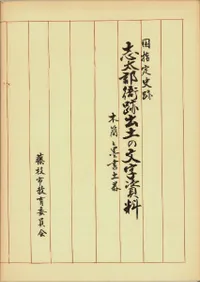 国指定史跡
志太郡衙跡出土の文字資料
木簡と墨書土器
藤枝市教育委員会